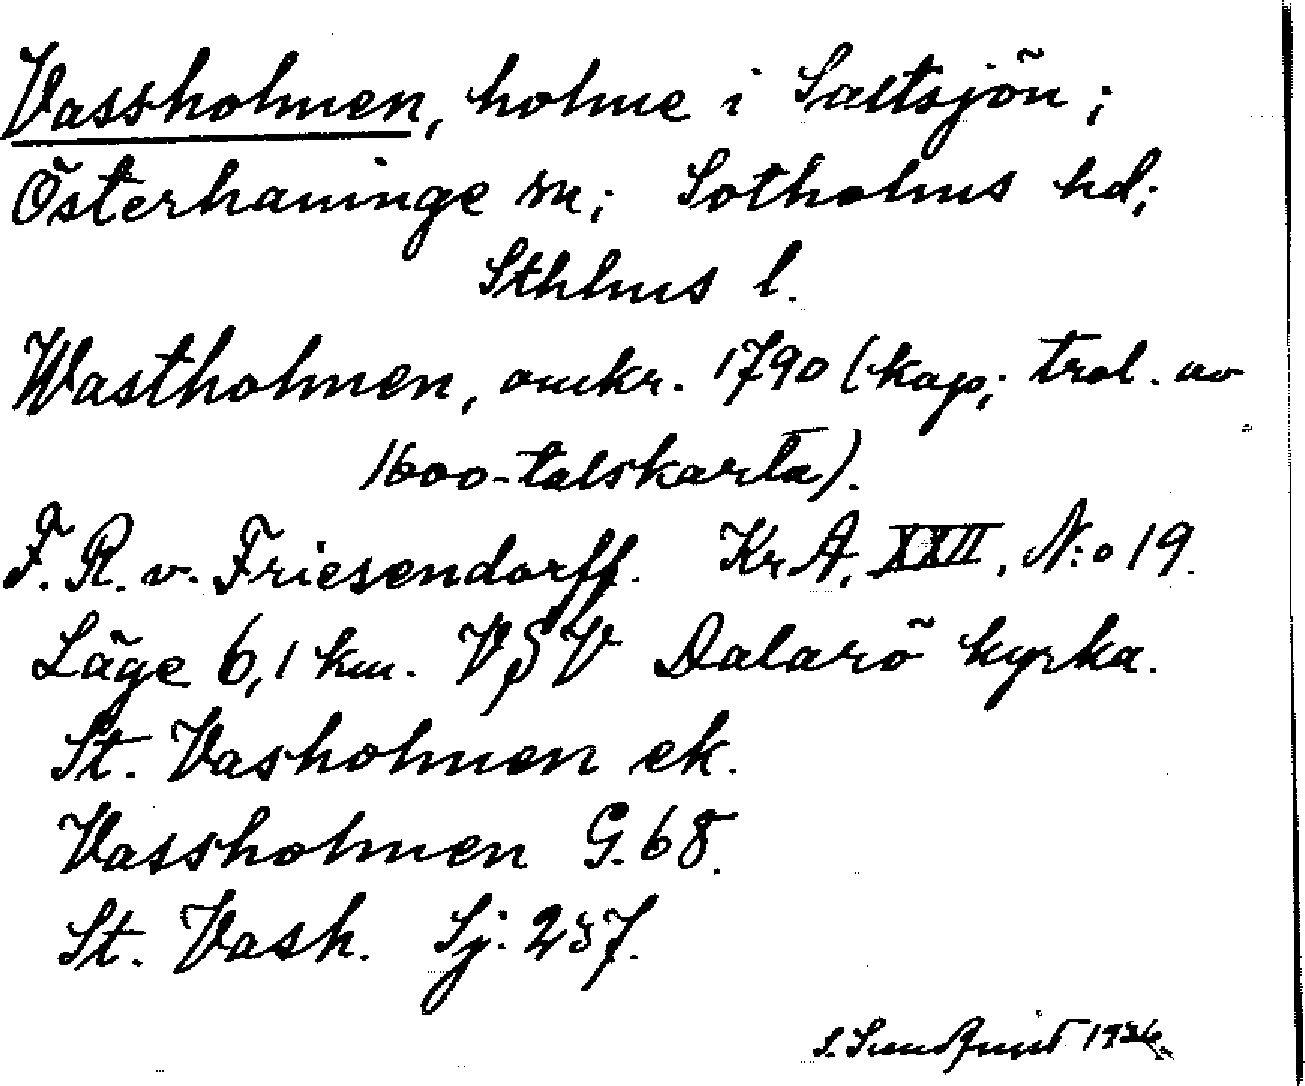 Vassholmen, holme i Saltsjön;
Österhaninge sn; Sotholms hd;
Sthlms l.
Wastholmen, omkr. 1790 (kop; trol. av
1600-talskarta).
F. R. v. Friesendorff. Kr A, XXII, N:o 19.
Läge 6,1 km. VSV Dalarö kyrka.
St. Vasholmen ek.
Vassholmen G. 68.
St. Vash. Sj. 237.